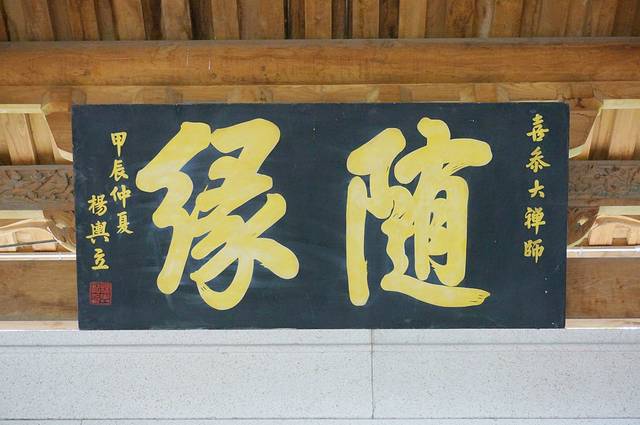 喜泰大禅師
随缘
甲辰仲夏
楊興立